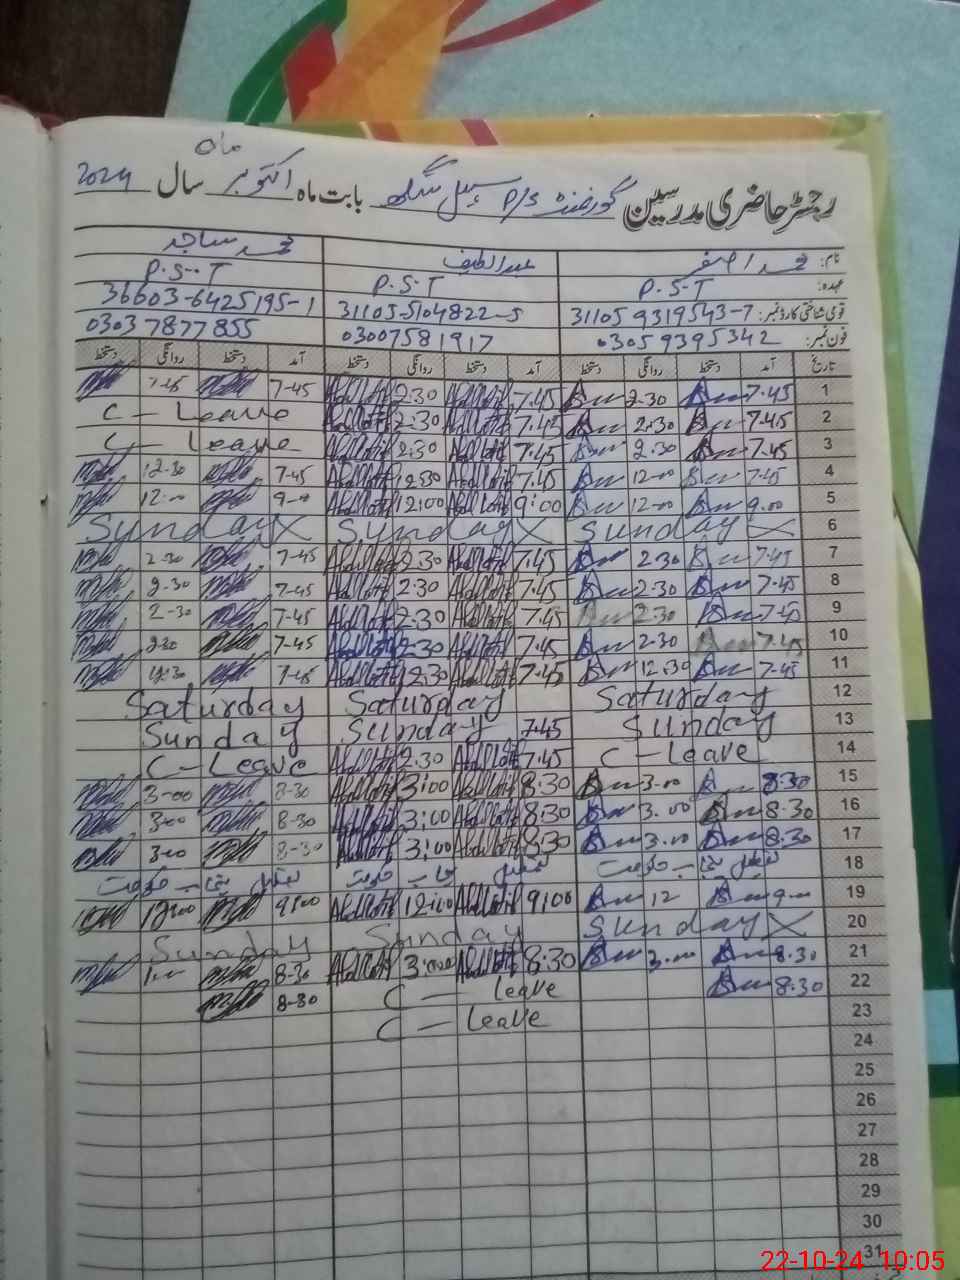 ماہ
رجسٹر حاضری مدرسین گورنمنٹ P/S بابت ماہ اکتوبر سال 2024
نام: محمد اصغر عبدالطیف محمد ساجد
عہدہ: P.S.T P.S.T P.S.T
قومی شناختی کارڈ نمبر: 31105 9319543-7 31105-5104822-5 36603-6425195-1
فون نمبر: 03059395342 03007581917 03037877855
تاریخ آمد دستخط روانگی دستخط آمد دستخط روانگی دستخط آمد دستخط روانگی دستخط
1 7.45 2.30 7.45 2.30 7-45
2 7.45 2.30 7.45 2.30 C - Leave
3 7.45 2.30 7.45 2.30 C - Leave
4 7.45 12.00 7.45 12.30 7-45 12-30
5 9.00 12.00 9:00 12:00 9-00 12:00
6 Sunday Sunday Sunday
7 7.45 2.30 7.45 2.30 7-45 2-30
8 7.45 2.30 7.45 2.30 7-45 2-30
9 7.45 2.30 7.45 2.30 7-45 2-30
10 7.45 2.30 7.45 2.30 7-45 2.30
11 7.45 12.30 7.45 12.30 7-45 12.30
12 Saturday Saturday Saturday
13 Sunday 7.45 Sunday Sunday
14 C - Leave 7.45 2.30 C - Leave
15 8.30 3.00 8.30 3:00 8-30 3-00
16 8.30 3.00 8.30 3:00 8-30 3-00
17 8.30 3.00 8.30 3:00 8-30 3-00
18 تعطیل پنجاب حکومت تعطیل پنجاب حکومت تعطیل پنجاب حکومت
19 9.00 12 9:00 12:00 9:00 12:00
20 Sunday Sunday Sunday
21 8.30 3.00 8:30 3:00 8-30
22 8.30 C - Leave 8-30
23 C - Leave
24
25
26
27
28
29
30
31
22-10-24 10:05